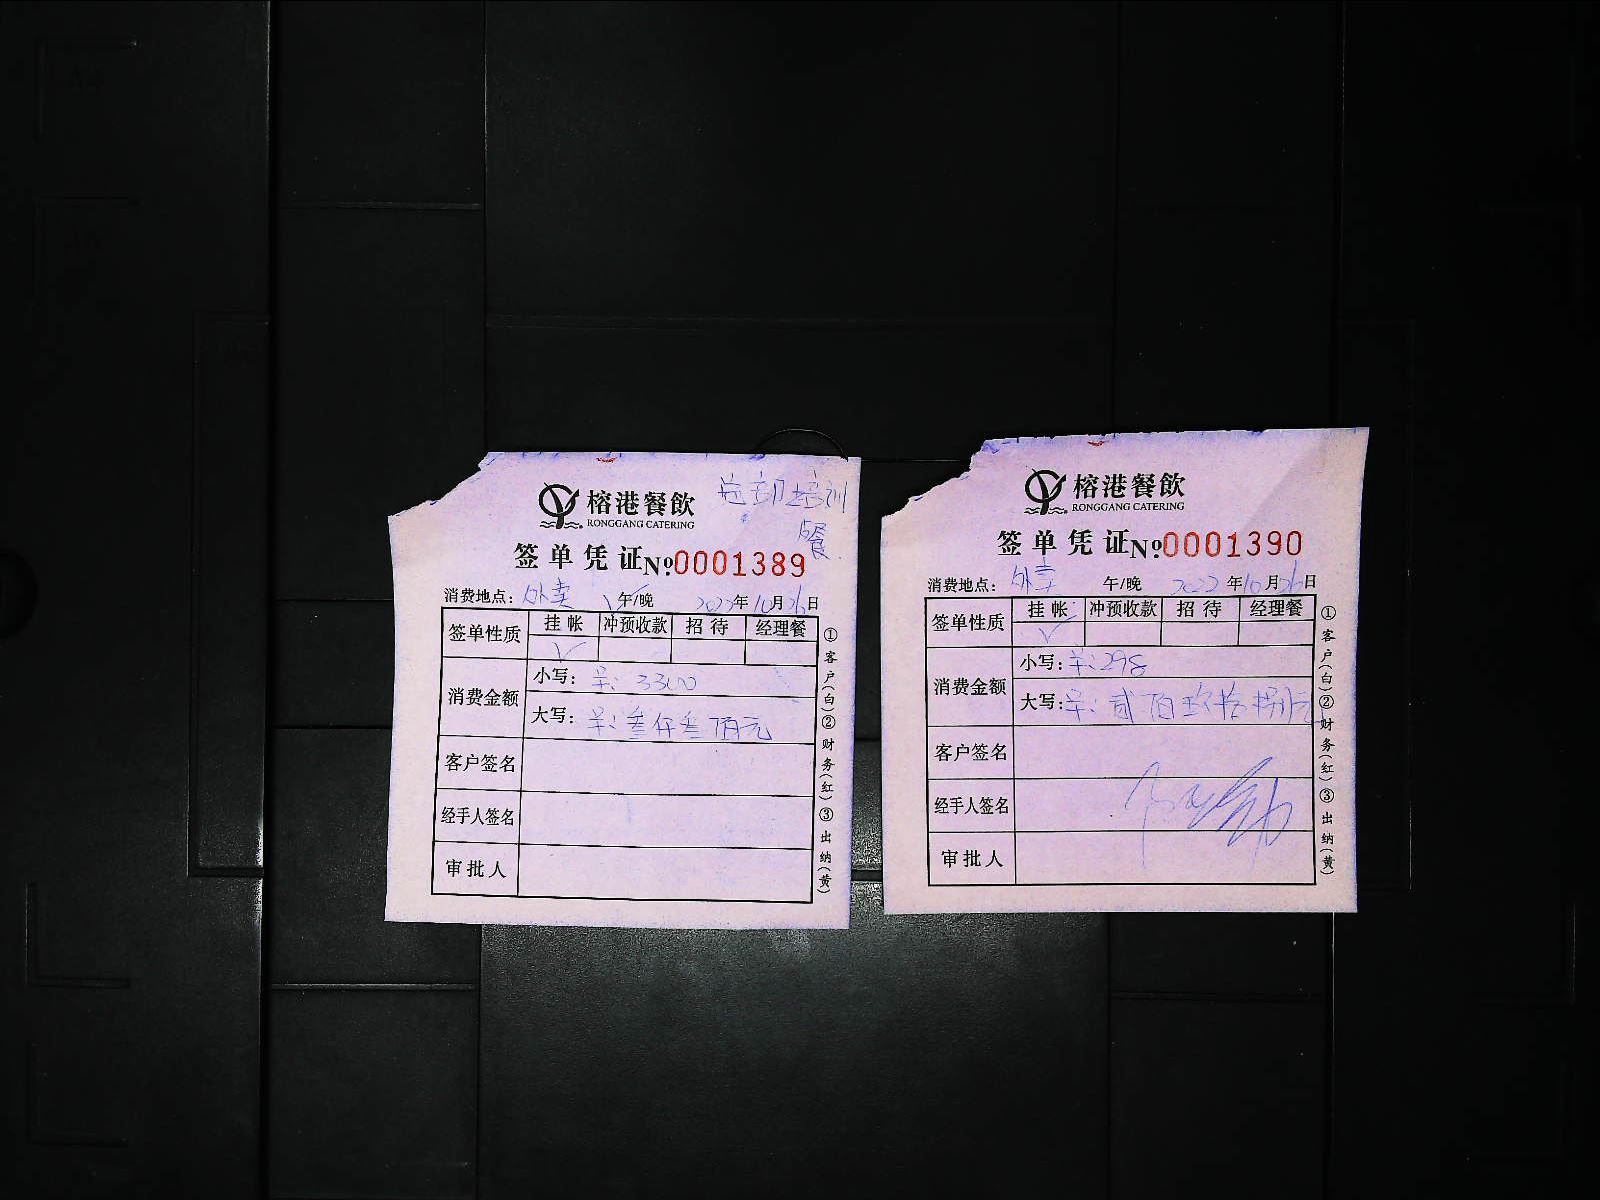 榕港餐飲
RONGGANG CATERING
总部培训
餐
签单凭证 №0001389
消费地点：外卖 午/晚 2022年10月26日
签单性质 挂帐 冲预收款 招待 经理餐
✓
消费金额 小写：¥：3300
大写：¥：叁仟叁佰元
客户签名
经手人签名
审批人
①客户(白)②财务(红)③出纳(黄)
榕港餐飲
RONGGANG CATERING
签单凭证 №0001390
消费地点：外卖 午/晚 2022年10月26日
签单性质 挂帐 冲预收款 招待 经理餐
✓
消费金额 小写：¥：298
大写：¥：贰佰玖拾捌元
客户签名
经手人签名
审批人
①客户(白)②财务(红)③出纳(黄)